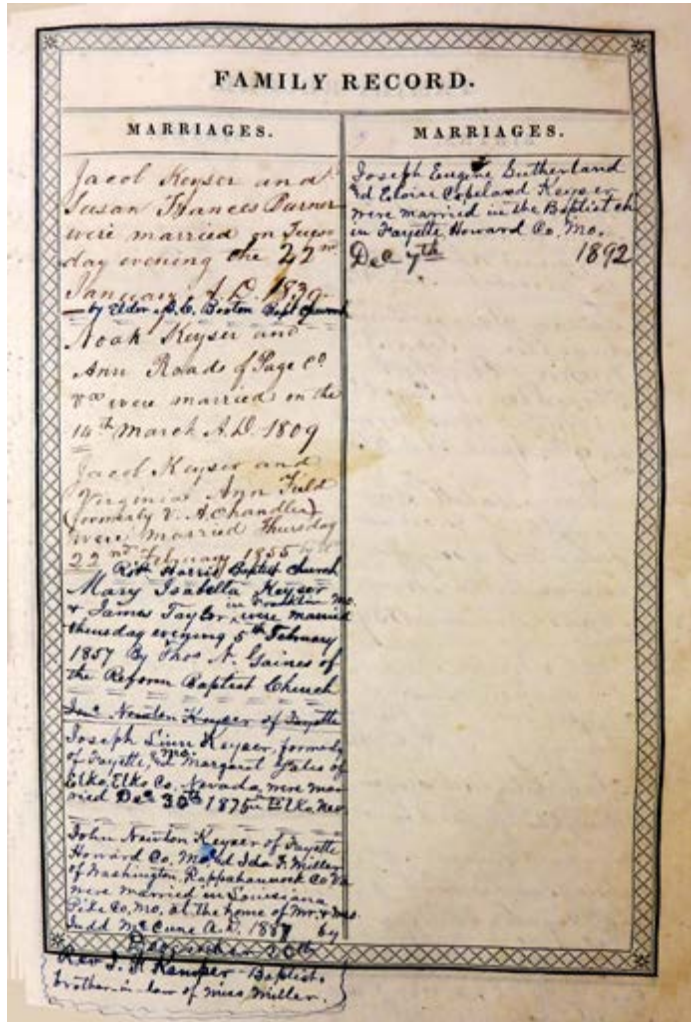 FAMILY RECORD.
MARRIAGES.
Jacob Keyser and
Susan Frances Purner
were married on Tues
day evening the 22nd
January A.D. 1839
by Elder Baptist Church
Noah Keyser and
Ann Roads of Page Co
Va were married on the
14th March A.D. 1809
Jacob Keyser and
Virginia Ann Field
(formerly V. A. Chandler)
were married Thursday
22nd February 1855
Robt Harris Baptist Church
Mary Isabella Keyser
in Franklin Mo.
& James Taylor were married
thursday evening 5th February
1857 By Thos N. Gaines of
the Reform Baptist Church
Newton Keyser of Fayette
Joseph Keyser, formerly
of Fayette, Mo. Margaret Yates of
Elko, Elko Co. Nevada, were mar
ried Dec 30th 1875 in Elko, Nev
John Newton Keyser of Fayette
Howard Co. Mo. Ida F. Miller
of Washington, Rappahannock Co Va
were married in Louisiana
Pike Co, Mo. at the home of Mr. & Mrs.
Judd McCune A.D. 188 by
December
Rev J. Kemper - Baptist.
brother-in-law of Miss Miller.
MARRIAGES.
Joseph Eugene Sutherland
Eloise Copeland Keyser
were married in the Baptist ch
in Fayette Howard Co, Mo.
Dec 7th 1892